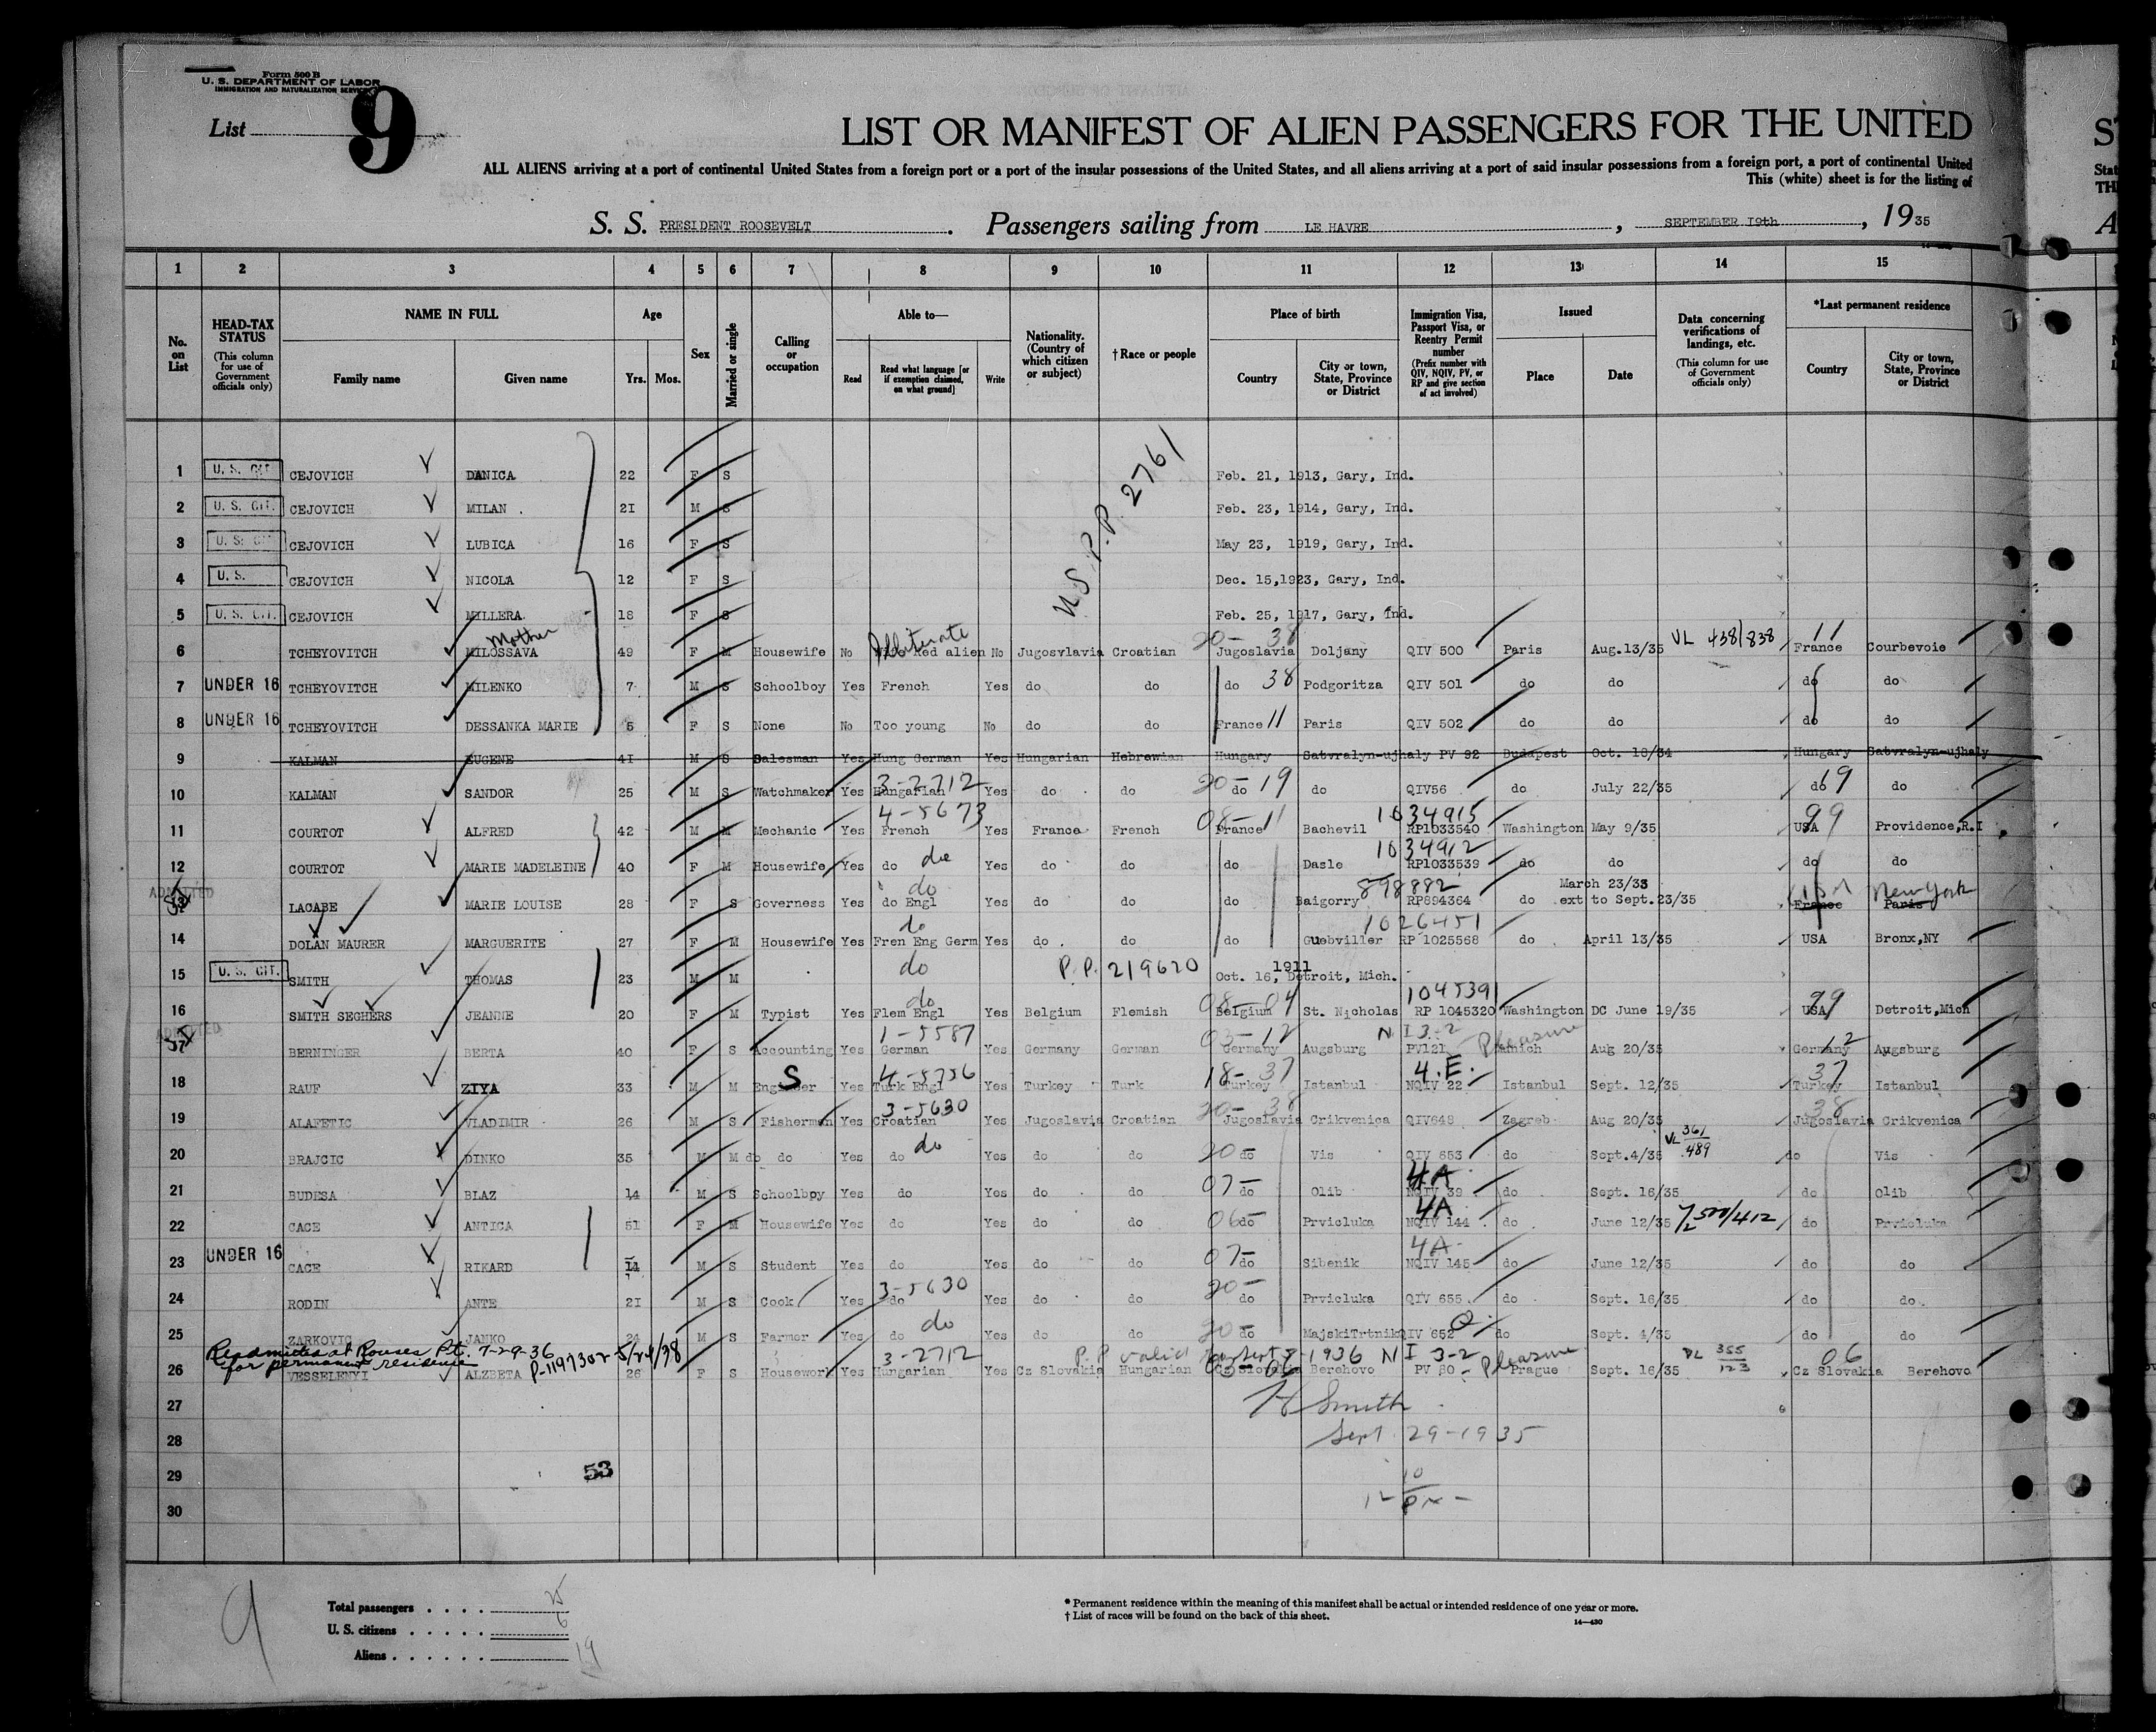 Form 500 B
U. S. DEPARTMENT OF LABOR
IMMIGRATION AND NATURALIZATION SERVICE
List 9
LIST OR MANIFEST OF ALIEN PASSENGERS FOR THE UNITED
ALL ALIENS arriving at a port of continental United States from a foreign port or a port of the insular possessions of the United States, and all aliens arriving at a port of said insular possessions from a foreign port, a port of continental United
This (white) sheet is for the listing of
S. S. PRESIDENT ROOSEVELT. Passengers sailing from LE HAVRE, SEPTEMBER I9th, 1935
1 2 3 4 5 6 7 8 9 10 11 12 13 14 15
No. on List
HEAD-TAX STATUS (This column for use of Government officials only)
NAME IN FULL Family name Given name
Age Yrs. Mos.
Sex
Married or single
Calling or occupation
Able to— Read Read what language [or if exemption claimed, on what ground] Write
Nationality. (Country of which citizen or subject)
†Race or people
Place of birth Country City or town, State, Province or District
Immigration Visa, Passport Visa, or Reentry Permit number (Prefix number with QIV, NQIV, PV, or RP and give section of act involved)
Issued Place Date
Data concerning verifications of landings, etc. (This column for use of Government officials only)
*Last permanent residence Country City or town, State, Province or District
U.S. P.P. 2761
1 U. S. CIT. CEJOVICH DANICA 22 F S Feb. 21, 1913, Gary, Ind.
2 U. S. CIT. CEJOVICH MILAN 2I M S Feb. 23, 1914, Gary, Ind.
3 U. S. CIT CEJOVICH LUBICA 16 F S May 23, 1919, Gary, Ind.
4 U. S. CEJOVICH NICOLA 12 F S Dec. 15,1923, Gary, Ind.
5 U. S. CIT. CEJOVICH MILLERA 18 F S Feb. 25, 1917, Gary, Ind.
Mother Illiterate 20- 38 VL 438/838 11
6 TCHEYOVITCH MILOSSAVA 49 F M Housewife No alien No Jugosvlavia Croatian Jugoslavia Doljany QIV 500 Paris Aug.13/35 France Courbevoie
7 UNDER 16 TCHEYOVITCH MILENKO 7 M S Schoolboy Yes French Yes do do do 38 Podgoritza QIV 501 do do do do
8 UNDER 16 TCHEYOVITCH DESSANKA MARIE 5 F S None No Too young No do do France 11 Paris QIV 502 do do do do
9 KALMAN EUGENE 4I M S Salesman Yes Hung German Yes Hungarian Hebrewian Hungary Satvralyn-ujhaly PV 92 Budapest Oct. 18/34 Hungary Satvralyn-ujhaly
3-2712
10 KALMAN SANDOR 25 M S Watchmaker Yes Hungarian Yes do do 20- do 19 do QIV56 do July 22/35 do 19 do
4-5673 08-11 1034915 99
11 COURTOT ALFRED 42 M M Mechanic Yes French Yes France French France Bachevil RP1033540 Washington May 9/35 USA Providence,R.I
1034912
12 COURTOT MARIE MADELEINE 40 F M Housewife Yes do do Yes do do do Dasle RP1033539 do do do do
ADMITTED do 898882 March 23/33 New York
13 LACABE MARIE LOUISE 28 F S Governess Yes do Engl Yes do do do Baigorry RP894364 do ext to Sept.23/35 France Paris
do 1026451
14 DOLAN MAURER MARGUERITE 27 F M Housewife Yes Fren Eng Germ Yes do do do Guebviller RP 1025568 do April 13/35 USA Bronx,NY
15 U. S. CIT. SMITH THOMAS 23 M M do P.P. 219620 Oct. 16, 1911 Detroit, Mich.
do 08-04 1045391 99
16 SMITH SEGHERS JEANNE 20 F M Typist Yes Flem Engl Yes Belgium Flemish Belgium St. Nicholas RP 1045320 Washington DC June 19/35 USA Detroit,Mich
ADMITTED 1-5587 03-12 N I 3-2 Pleasure 12
17 BERNINGER BERTA 40 F S Accounting Yes German Yes Germany German Germany Augsburg PV121 Munich Aug 20/35 Germany Augsburg
S 4-5756 18-37 4.E. 37
18 RAUF ZIYA 33 M M Engineer Yes Turk Engl Yes Turkey Turk Turkey Istanbul NQIV 22 Istanbul Sept. 12/35 Turkey Istanbul
3-5630 20-38 38
19 ALAFETIC VLADIMIR 26 M S Fisherman Yes Croatian Yes Jugoslavia Croatian Jugoslavia Crikvenica QIV648 Zagreb Aug 20/35 Jugoslavia Crikvenica
20 BRAJCIC DINKO 35 M M do do Yes do do Yes do do 20- do Vis QIV 653 do Sept.4/35 VL 361/489 do Vis
4A
21 BUDESA BLAZ 14 M S Schoolboy Yes do Yes do do 07- do Olib NQIV 39 do Sept. 16/35 do Olib
4A
22 CACE ANTICA 51 F M Housewife Yes do Yes do do 06- do Prvicluka NQIV 144 do June 12/35 do Prvicluka
4A
23 UNDER 16 CACE RIKARD 14 M S Student Yes do Yes do do 07- do Sibenik NQIV 145 do June 12/35 do do
3-5630
24 RODIN ANTE 2I M S Cook Yes do Yes do do 20- do Prvicluka QIV 655 do Sept. 16/35 do do
25 ZARKOVIC JANKO 24 M S Farmer Yes do do Yes do do 20- do MajskiTrtnik QIV 652 do Sept. 4/35 do do
Readmitted at Rouses Pt. 7-29-36
for permanent residence P-1197302-5/24/38
3-2712 P.P valid Sept 8-1936 N I 3-2 Pleasure VL 355/123 06
26 VESSELENYI ALZBETA 26 F S Housework Yes Hungarian Yes Cz Slovakia Hungarian Cz Slovakia Berehovo PV 80 Prague Sept. 16/35 Cz Slovakia Berehovo
27 H Smith
28 Sept 29-1935
29 53
30
9
Total passengers 25
U. S. citizens 6
Aliens 19
* Permanent residence within the meaning of this manifest shall be actual or intended residence of one year or more.
† List of races will be found on the back of this sheet.
14—430